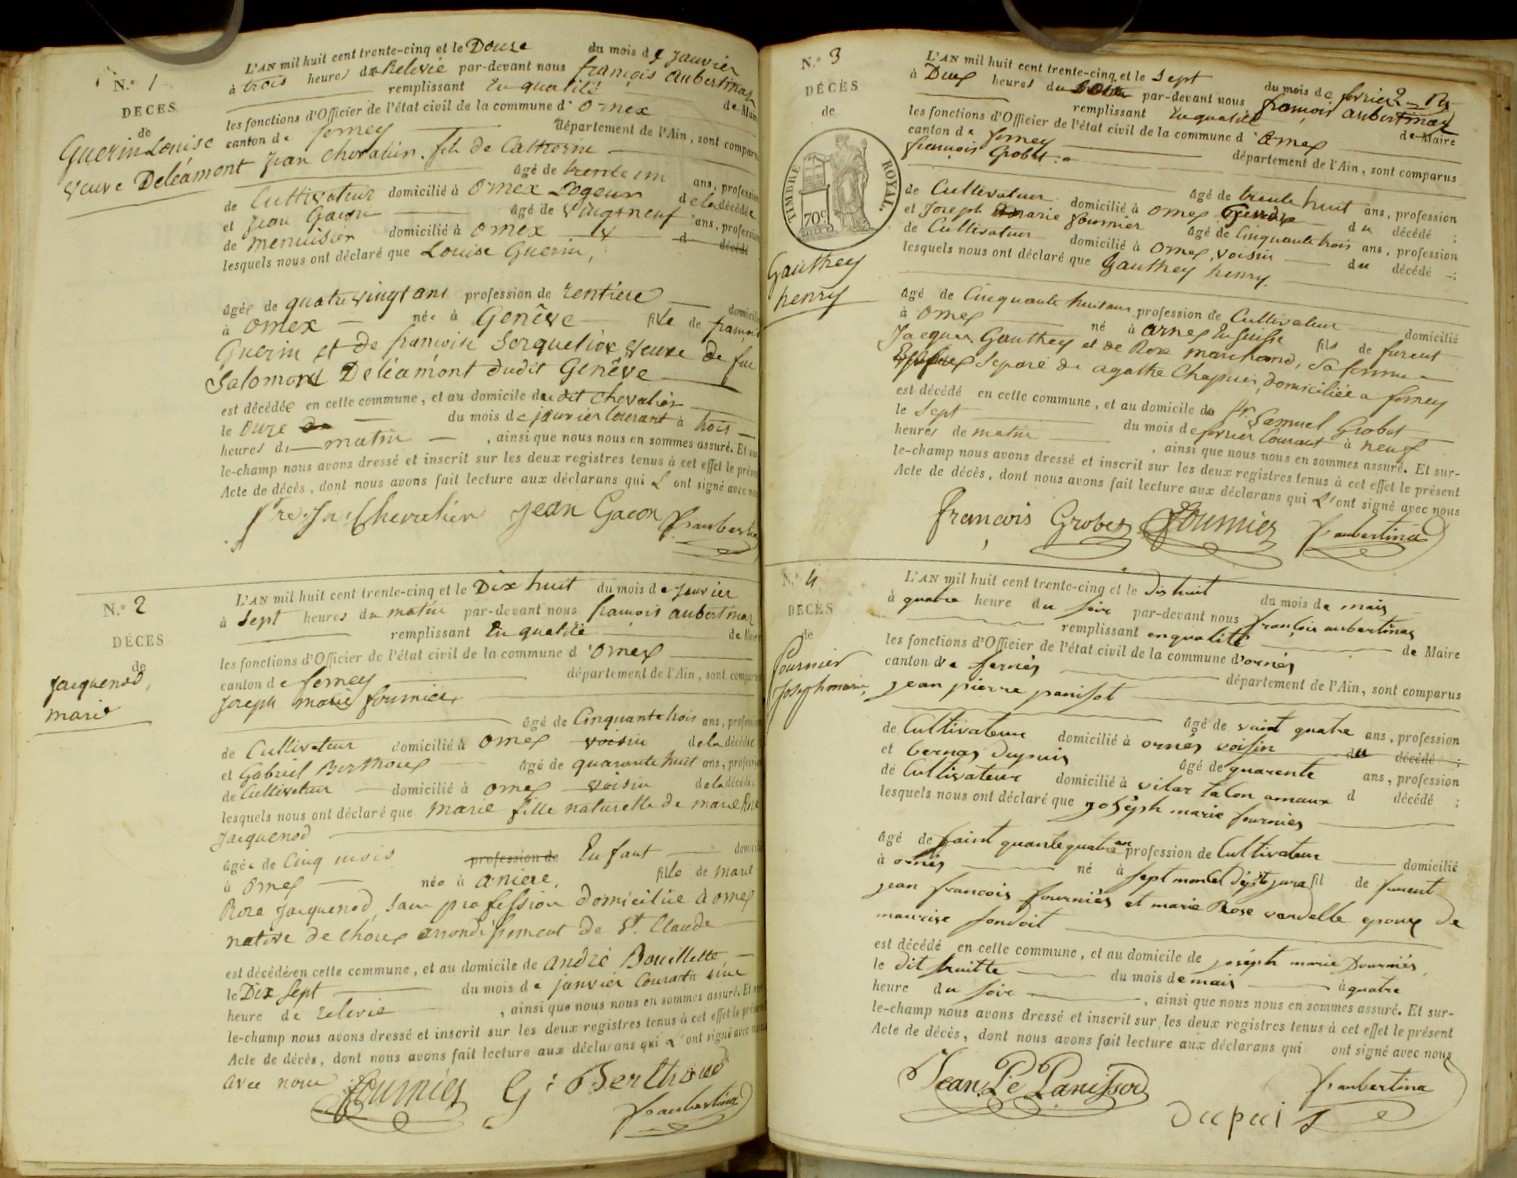 N.º 1
DÉCÈS
de
Guerin Louise
veuve Deléamont
L'AN mil huit cent trente-cinq et le Douze du mois de Janvier
à trois heures de Relevée par-devant nous françois aubertinaz
remplissant En qualité de Maire
les fonctions d'Officier de l'état civil de la commune d'Ornex
canton de ferney département de l'Ain, sont comparus
Jean chevalier, fils de Catherine
âgé de trente un ans, profession
de Cultivateur domicilié à Ornex Logeur de la décédée
et Jean Gacon âgé de vingt neuf ans, profession
de menuisier domicilié à Ornex d décédé
lesquels nous ont déclaré que Louise Guerin,
âgée de quatre vingt ans profession de rentière domicilié
à Ornex née à Genêve fille de françois
Guerin et de françoise veuve de feu
Salomond Deléamont dudit Genêve
est décédée en cette commune, et au domicile dudit chevalier
le onze du mois de janvier Courant à trois
heures du matin, ainsi que nous nous en sommes assuré. Et sur-
le-champ nous avons dressé et inscrit sur les deux registres tenus à cet effet le présent
Acte de décès, dont nous avons fait lecture aux déclarans qui L'ont signé avec nous
Chevalier Jean Gacon fr aubertina
N.º 2
DÉCÈS
de
Jacquenod,
marie
L'AN mil huit cent trente-cinq et le Dix huit du mois de Janvier
à Sept heures du matin par-devant nous françois aubertinaz
remplissant En qualité de Maire
les fonctions d'Officier de l'état civil de la commune d'Ornex
canton de ferney département de l'Ain, sont comparus
Joseph marie fournier
âgé de Cinquante trois ans, profession
de Cultivateur domicilié à Ornex voisin de la décédée
et Gabriel Berthoux âgé de quarante huit ans, profession
de Cultivateur domicilié à Ornex voisin de la décédée
lesquels nous ont déclaré que marie fille naturelle de marie Rose
Jacquenod
âgée de Cinq mois profession de Enfant domicilié
à Ornex née à aniere, fille de marie
Roze Jacquenod, sans profession domiciliée à Ornex
native de choux arrondissement de St. Claude
est décédée en cette commune, et au domicile de andré Bouillette
le Dix Sept du mois de janvier Courant à une
heure de relevée, ainsi que nous nous en sommes assuré. Et sur-
le-champ nous avons dressé et inscrit sur les deux registres tenus à cet effet le présent
Acte de décès, dont nous avons fait lecture aux déclarans qui L'ont signé avec nous
avec nous Fournier G: Berthoud
fr aubertina
N.º 3
DÉCÈS
de
TIMBRE ROYAL.
70c
Gauthey
henry
L'AN mil huit cent trente-cinq et le Sept du mois de fevrier
à Deux heures du par-devant nous françois aubertinaz
remplissant En qualité de Maire
les fonctions d'Officier de l'état civil de la commune d'Ornex
canton de ferney département de l'Ain, sont comparus
françois Grobet
âgé de trente huit ans, profession
de Cultivateur domicilié à Ornex du décédé ;
et Joseph marie fournier âgé de Cinquante trois ans, profession
de Cultivateur domicilié à Ornex, voisin du décédé ;
lesquels nous ont déclaré que Gauthey henry
âgé de Cinquante huit ans profession de Cultivateur domicilié
à Ornex né à arnex En suisse fils de furent
Jacques Gauthey et de Roze marchand, sa femme
Separé de agathe Chapuis, domiciliée a ferney
est décédé en cette commune, et au domicile du Sr. Samuel Grobet
le Sept du mois de fevrier Courant à neuf
heures de matin, ainsi que nous nous en sommes assuré. Et sur-
le-champ nous avons dressé et inscrit sur les deux registres tenus à cet effet le présent
Acte de décès, dont nous avons fait lecture aux déclarans qui L'ont signé avec nous
françois Grobet Fournier fr aubertina
N.º 4
DÉCÈS
de
Fournier
Joseph marie,
L'AN mil huit cent trente-cinq et le dishuit du mois de mais
à quatre heure du soire par-devant nous françois aubertinaz
remplissant enqualité de Maire
les fonctions d'Officier de l'état civil de la commune d'ornés
canton de fernés département de l'Ain, sont comparus
jean pierre panissot
âgé de vaint quatre ans, profession
de Cultivateur domicilié à ornés voisin du décédé ;
et bernar Dupuis âgé de quarente ans, profession
de Cultivateur domicilié à d décédé ;
lesquels nous ont déclaré que joséph marie fournier
âgé de saint quante quatre an profession de Cultivateur domicilié
à ornés né à fil de furent
jean francois fournier et marie Rose vandelle epoux de
maurise
est décédé en cette commune, et au domicile de joséph marie fournier,
le dit huitte du mois de mais à quatre
heure du soire, ainsi que nous nous en sommes assuré. Et sur-
le-champ nous avons dressé et inscrit sur les deux registres tenus à cet effet le présent
Acte de décès, dont nous avons fait lecture aux déclarans qui ont signé avec nous
Jean Pe Panissod fr aubertina
Dupuis